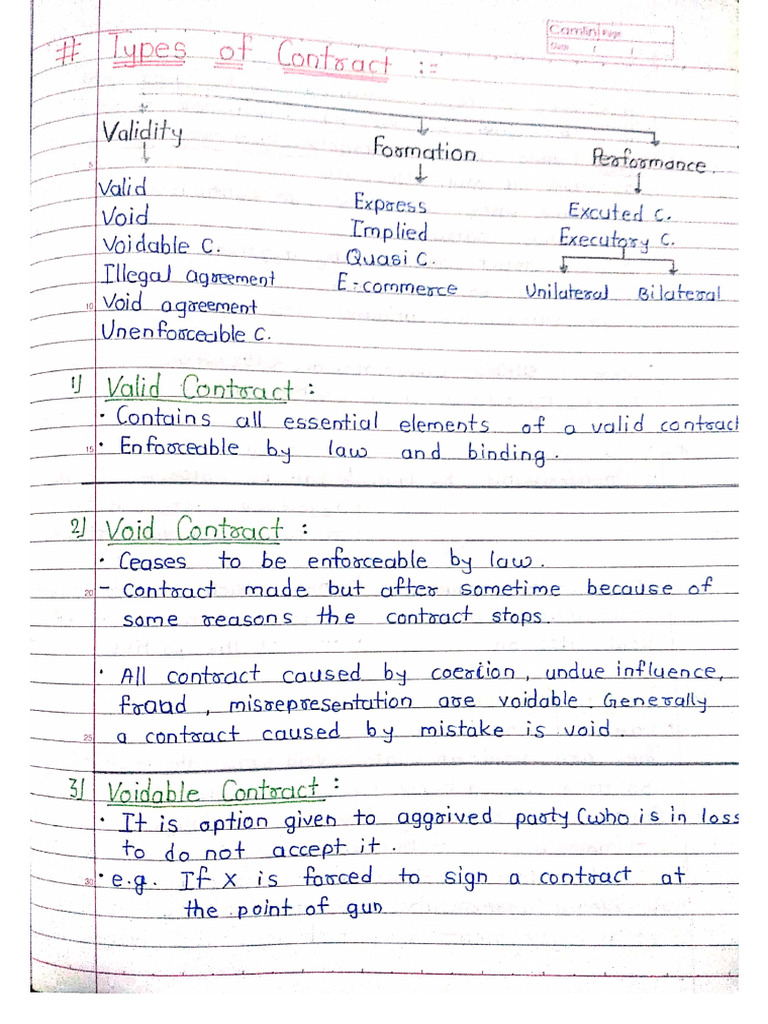 Camlin Page
Date / /
# Types of Contract :=
Validity Formation Performance.
Valid Express Excuted C.
Void Implied Executory C.
Voidable C. Quasi C. Unilateral Bilateral
Illegal agreement E-commerce
Void agreement
Unenforceable C.
1) Valid Contract :
• Contains all essential elements of a valid contract
• Enforceable by law and binding.
2) Void Contract :
• Ceases to be enforceable by law.
- Contract made but after sometime because of
some reasons the contract stops.
• All contract caused by coertion, undue influence,
fraud, misrepresentation are voidable. Generally
a contract caused by mistake is void.
3) Voidable Contract :
• It is option given to aggrived party (who is in loss
to do not accept it.
• e.g. If X is forced to sign a contract at
the point of gun